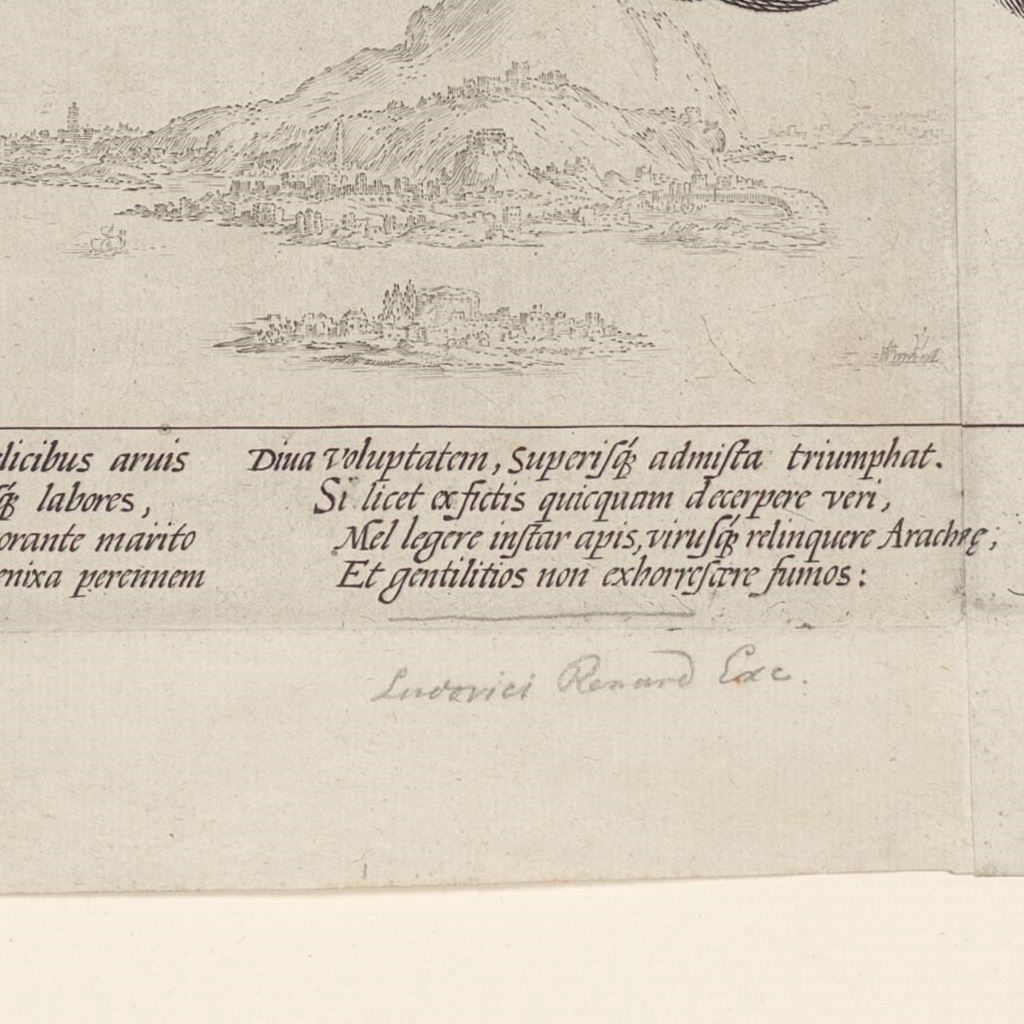 licibus aruis
labores,
orante marito
enixa perennem
Diua Voluptatem, Superisq́ꝫ admista triumphat.
Si licet ex fictis quicquam decerpere veri,
Mel legere instar apis, virusq́ꝫ relinquere Arachnę;
Et gentilitios non exhorrescere fumos:
Ludovici Renard Exc.